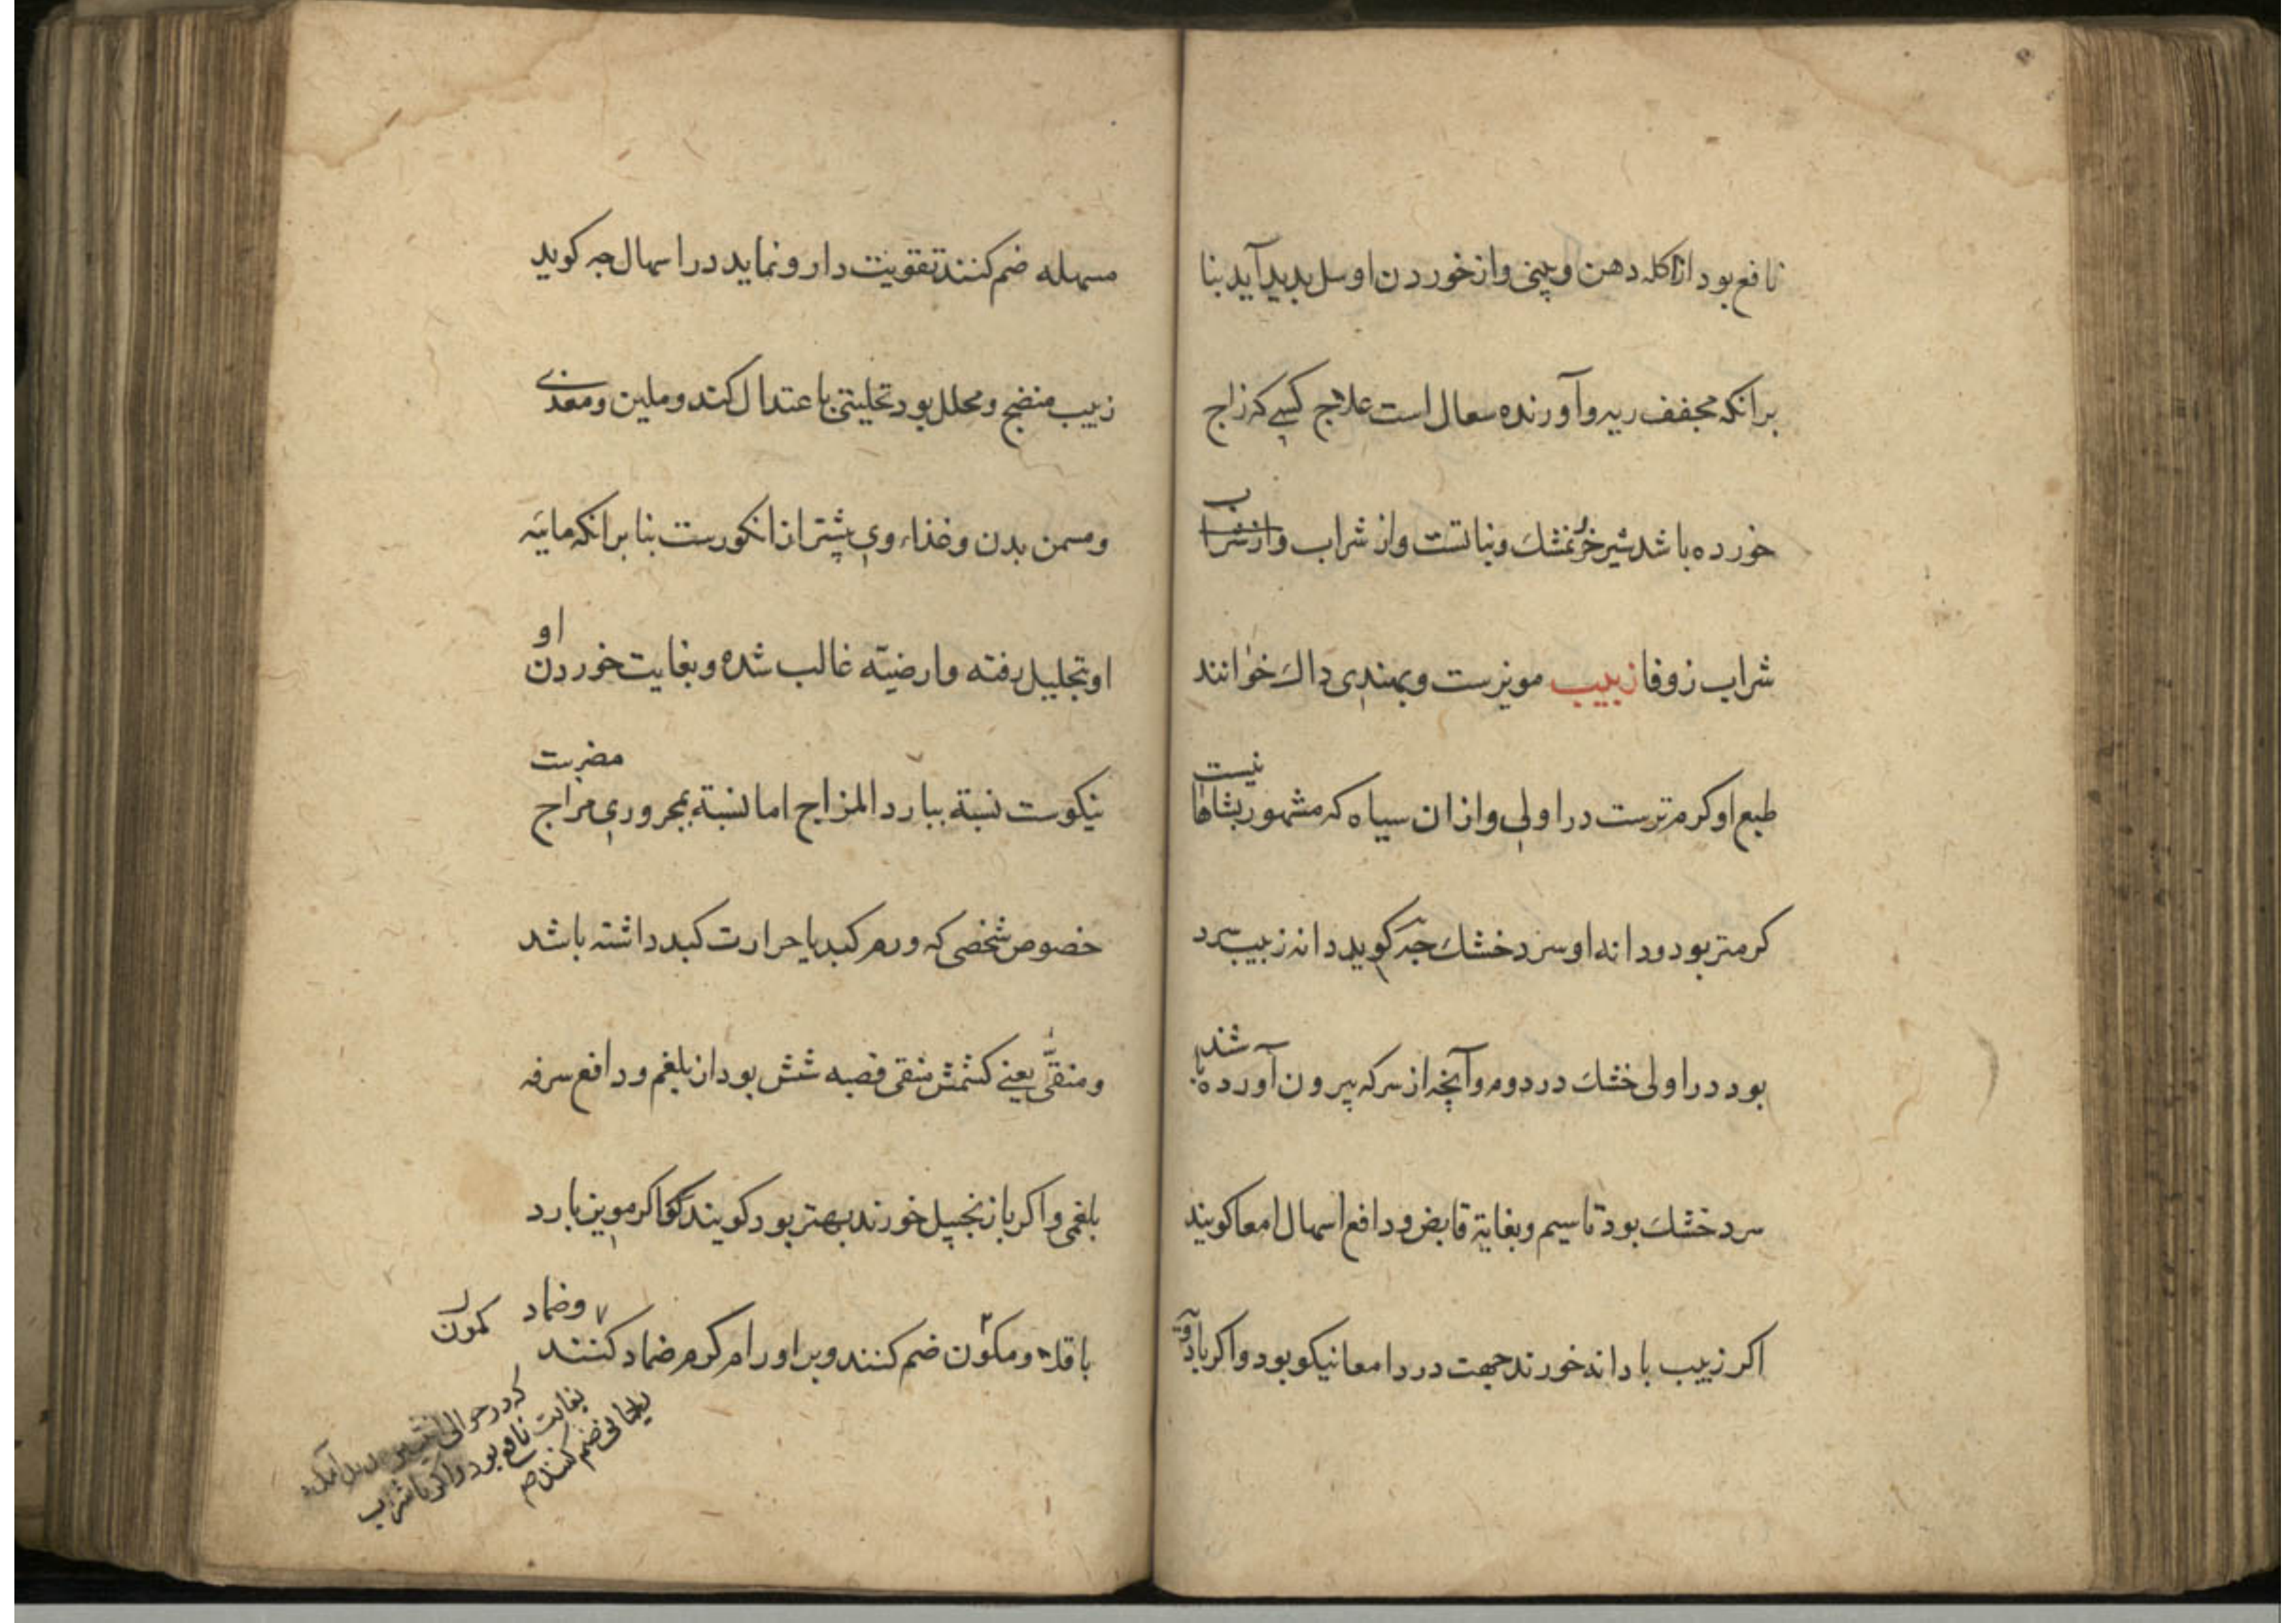 نافع بود از اکله دهن و بینی و از خوردن او سل بدید آید بنا
برانکه مجفف ریه و آورنده سعال است علاج کسی که زاج
خورده باشد شیر خر نمشک و نباتست و از شراب وازشراب
شراب زوفا زبیب مویزست و بهندی داک خوانند
طبع او کرم ترست در اولی و از ان سیاه که مشهور بشاها نیست
کرمتر بود و دانه او سرد خشک جه کوید دانه زبیب سرد
بود در اولی خشک در دوم و آنچه از سرکه بیرون آورده باشند
سرد خشک بود تا سیم و بغایة قابض و دافع اسهال امعا کویند
اکر زبیب با دانه خورند جهت درد امعا نیکو بود و اکر با دویه
مسهله ضم کنند تقویت دارو نماید در اسهال جه کوید
زبیب منضج و محلل بود تحلیلی باعتدال کند و ملین و مغذی
و مسمن بدن و غذاء وی بیشتر از انکورست بنا برانکه مائیه
او بتحلیل رفته و ارضیّه غالب شده و بغایت خوردن او
نیکوست نسبة ببارد المزاج اما نسبة بمحروری مزاج مضرست
خصوص شخصی که ورم کبد یا حرارت کبد داشته باشد
و منقّی یعنی کشمش منقی قصبه شش بود از بلغم و دافع سرفه
بلغمی و اکر با زنجبیل خورند بهتر بود کویند که اکر مویز با رد
باقله و مکون ضم کنند و بر اورام کرم ضماد کنند
وضماد
کمون
که در حوالی انثیین بدید آمده
بغایت نافع بود و اکر با شراب
ریحانی ضم کنند صح